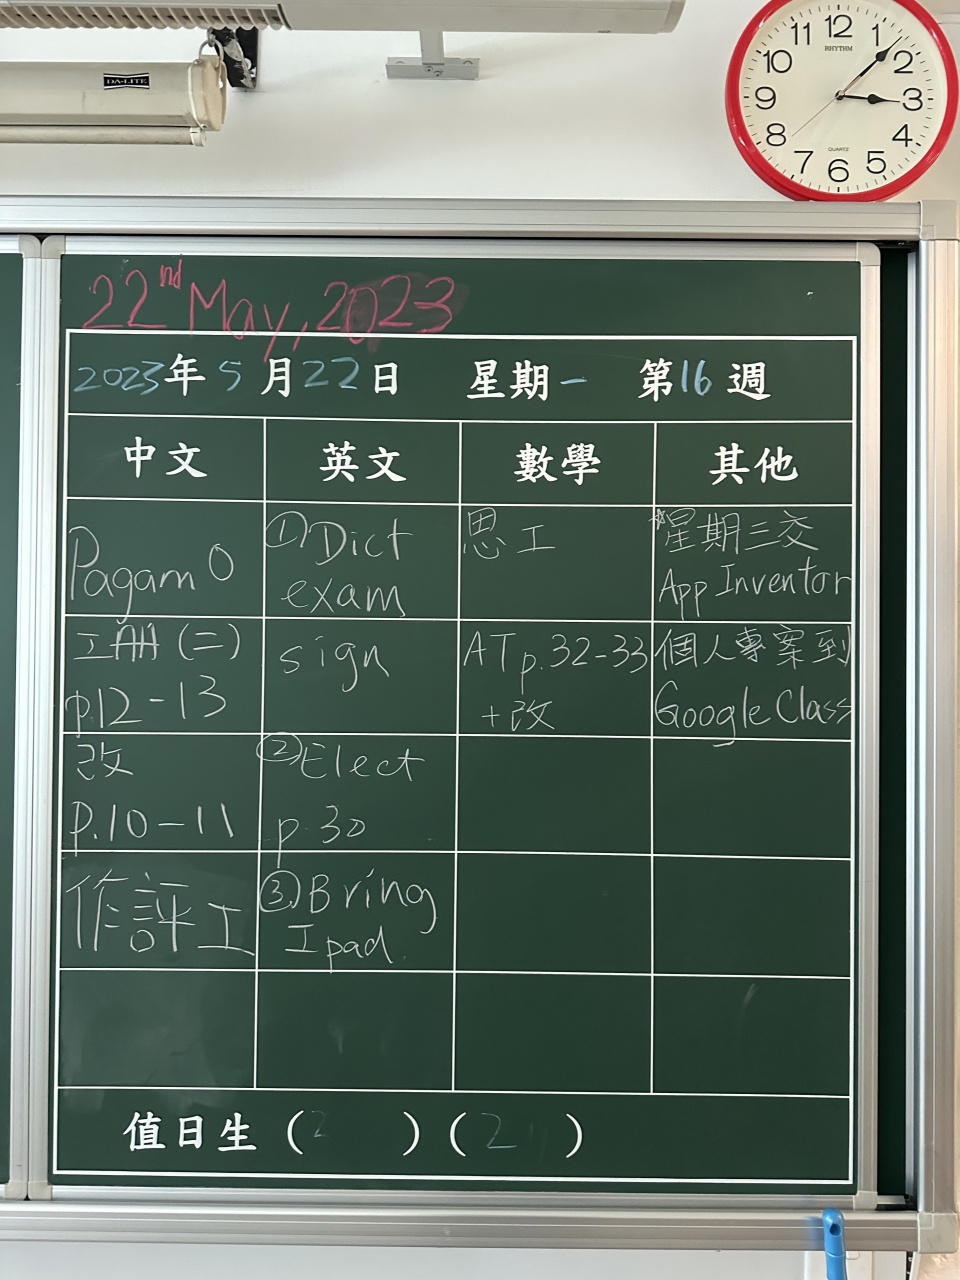 DA-LITE
12
1
2
3
4
5
6
7
8
9
10
11
RHYTHM
QUARTZ
22nd May, 2023
2023年5月22日 星期一 第16週
中文 英文 數學 其他
PagamO
工冊(二)
p.12-13
改
P.10-11
作評工
①Dict
exam
sign
②Elect
p.30
③Bring
Ipad.
思工
AT p.32-33
+改
*星期三交
App Inventor
個人專案到
Google Class
值日生 ( 2 ) ( 2 )